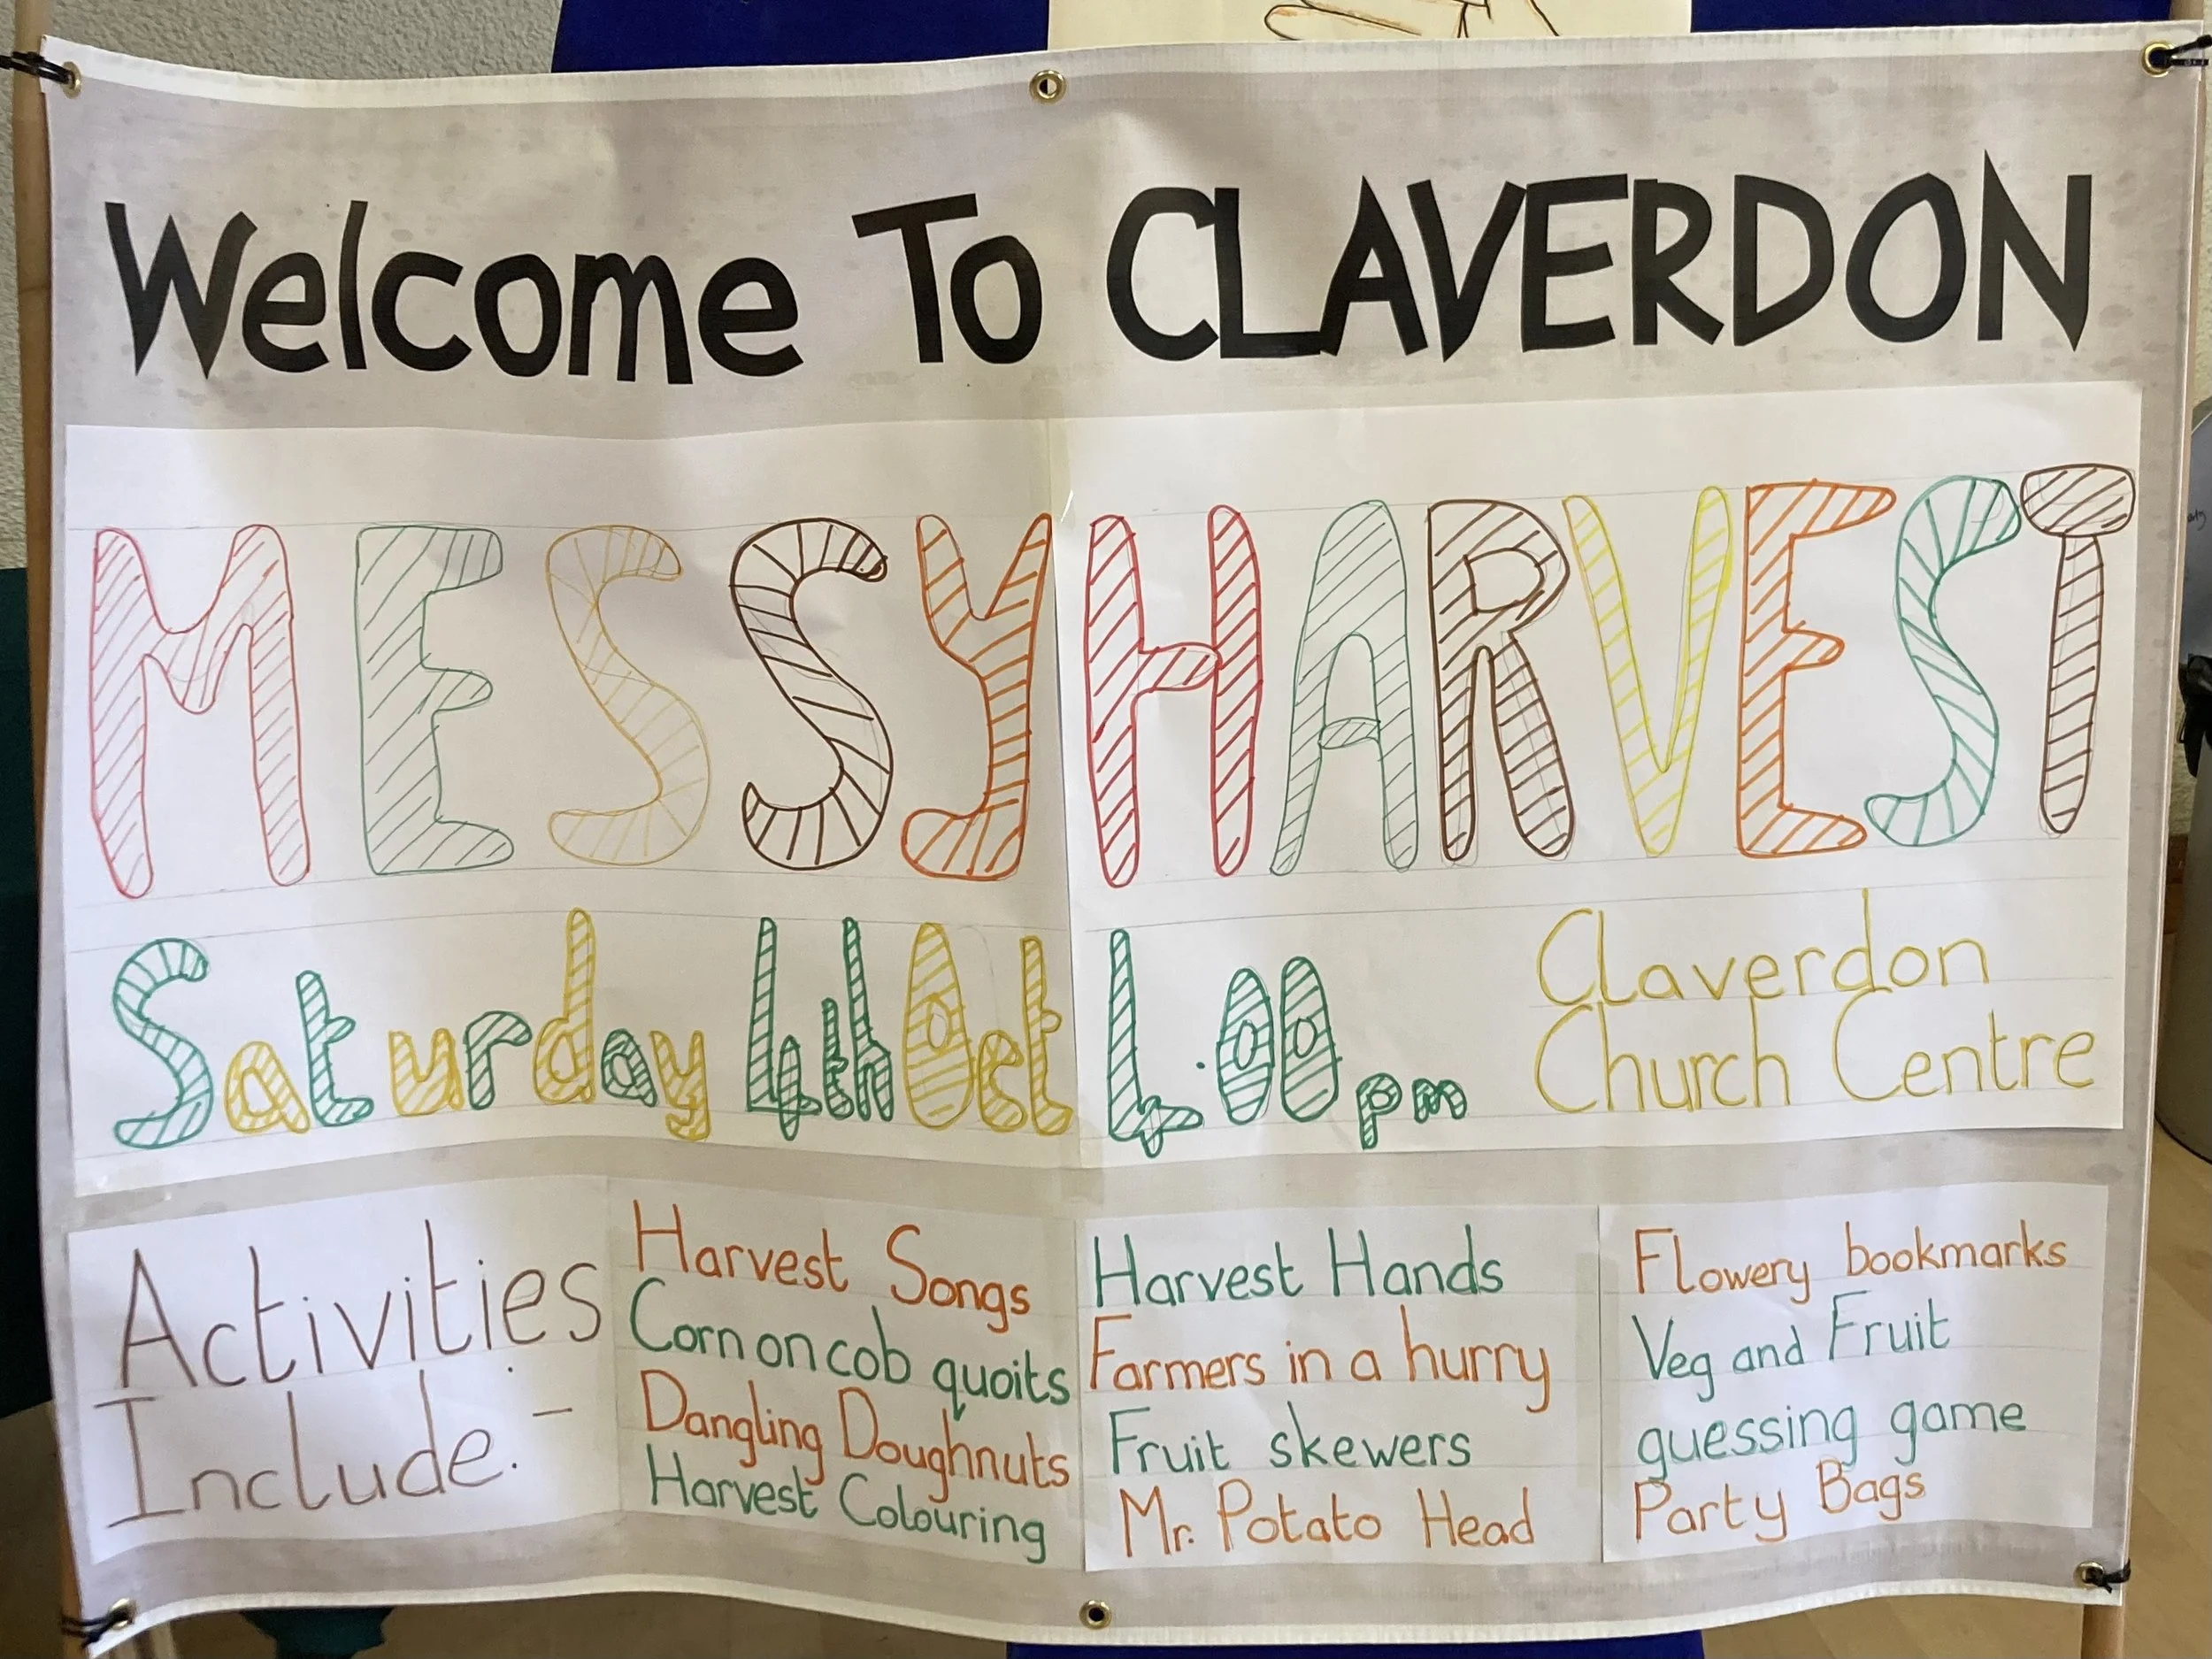 Welcome To CLAVERDON
MESSY HARVEST
Saturday 4th Oct 4.00pm
Claverdon
Church Centre
Activities
Include:-
Harvest Songs
Corn on cob quoits
Dangling Doughnuts
Harvest Colouring
Harvest Hands
Farmers in a hurry
Fruit skewers
Mr. Potato Head
Flowery bookmarks
Veg and Fruit
guessing game
Party Bags